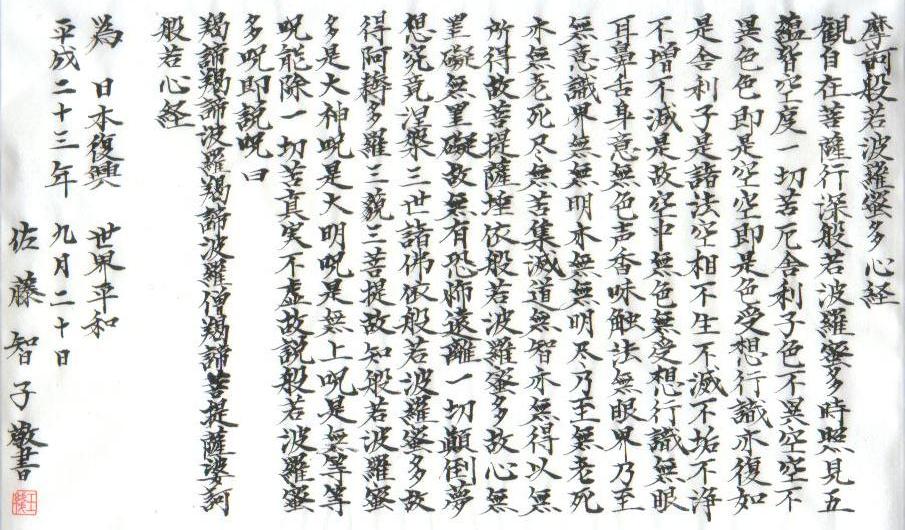 摩訶般若波羅蜜多心経
観自在菩薩行深般若波羅蜜多時照見五
蘊皆空度一切苦厄舎利子色不異空空不
異色色即是空空即是色受想行識亦復如
是舎利子是諸法空相不生不滅不垢不浄
不増不減是故空中無色無受想行識無眼
耳鼻舌身意無色声香味触法無眼界乃至
無意識界無無明亦無無明尽乃至無老死
亦無老死尽無苦集滅道無智亦無得以無
所得故菩提薩埵依般若波羅蜜多故心無
罣礙無罣礙故無有恐怖遠離一切顛倒夢
想究竟涅槃三世諸佛依般若波羅蜜多故
得阿耨多羅三藐三菩提故知般若波羅蜜
多是大神呪是大明呪是無上呪是無等等
呪能除一切苦真実不虚故説般若波羅蜜
多呪即説呪曰
羯諦羯諦波羅羯諦波羅僧羯諦菩提薩婆訶
般若心経
為 日本復興 世界平和
平成二十三年 九月二十日
佐藤智子 敬書